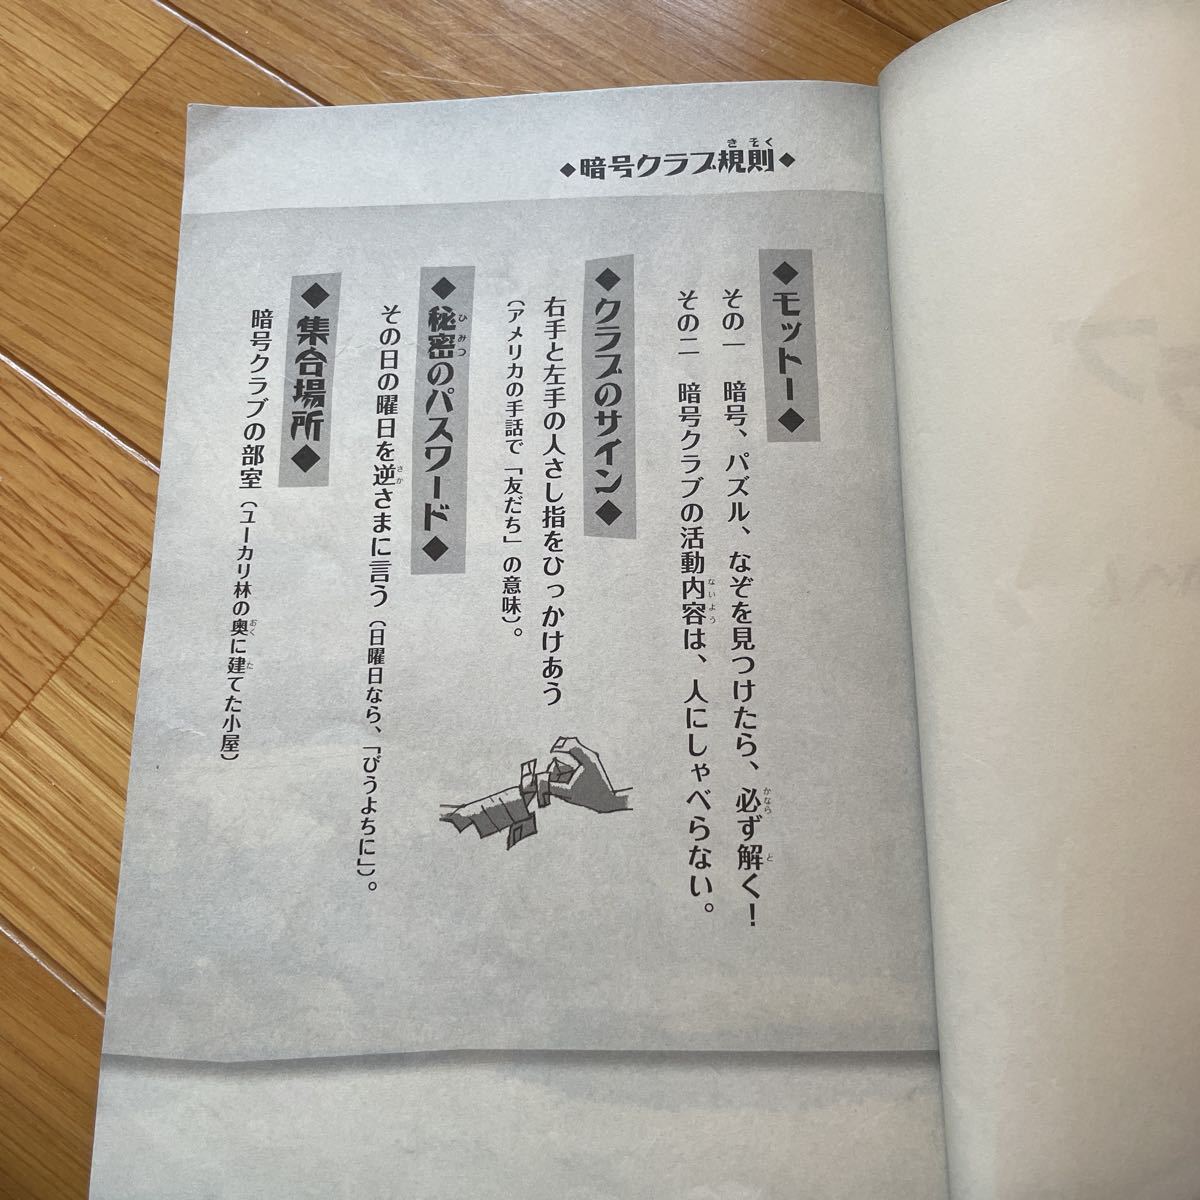 ◆暗号クラブ規則◆
◆モットー◆
その一 暗号、パズル、なぞを見つけたら、必ず解く!
その二 暗号クラブの活動内容は、人にしゃべらない。
◆クラブのサイン◆
右手と左手の人さし指をひっかけあう
(アメリカの手話で「友だち」の意味)。
◆秘密のパスワード◆
その日の曜日を逆さまに言う(日曜日なら、「びうよちに」)。
◆集合場所◆
暗号クラブの部室(ユーカリ林の奥に建てた小屋)